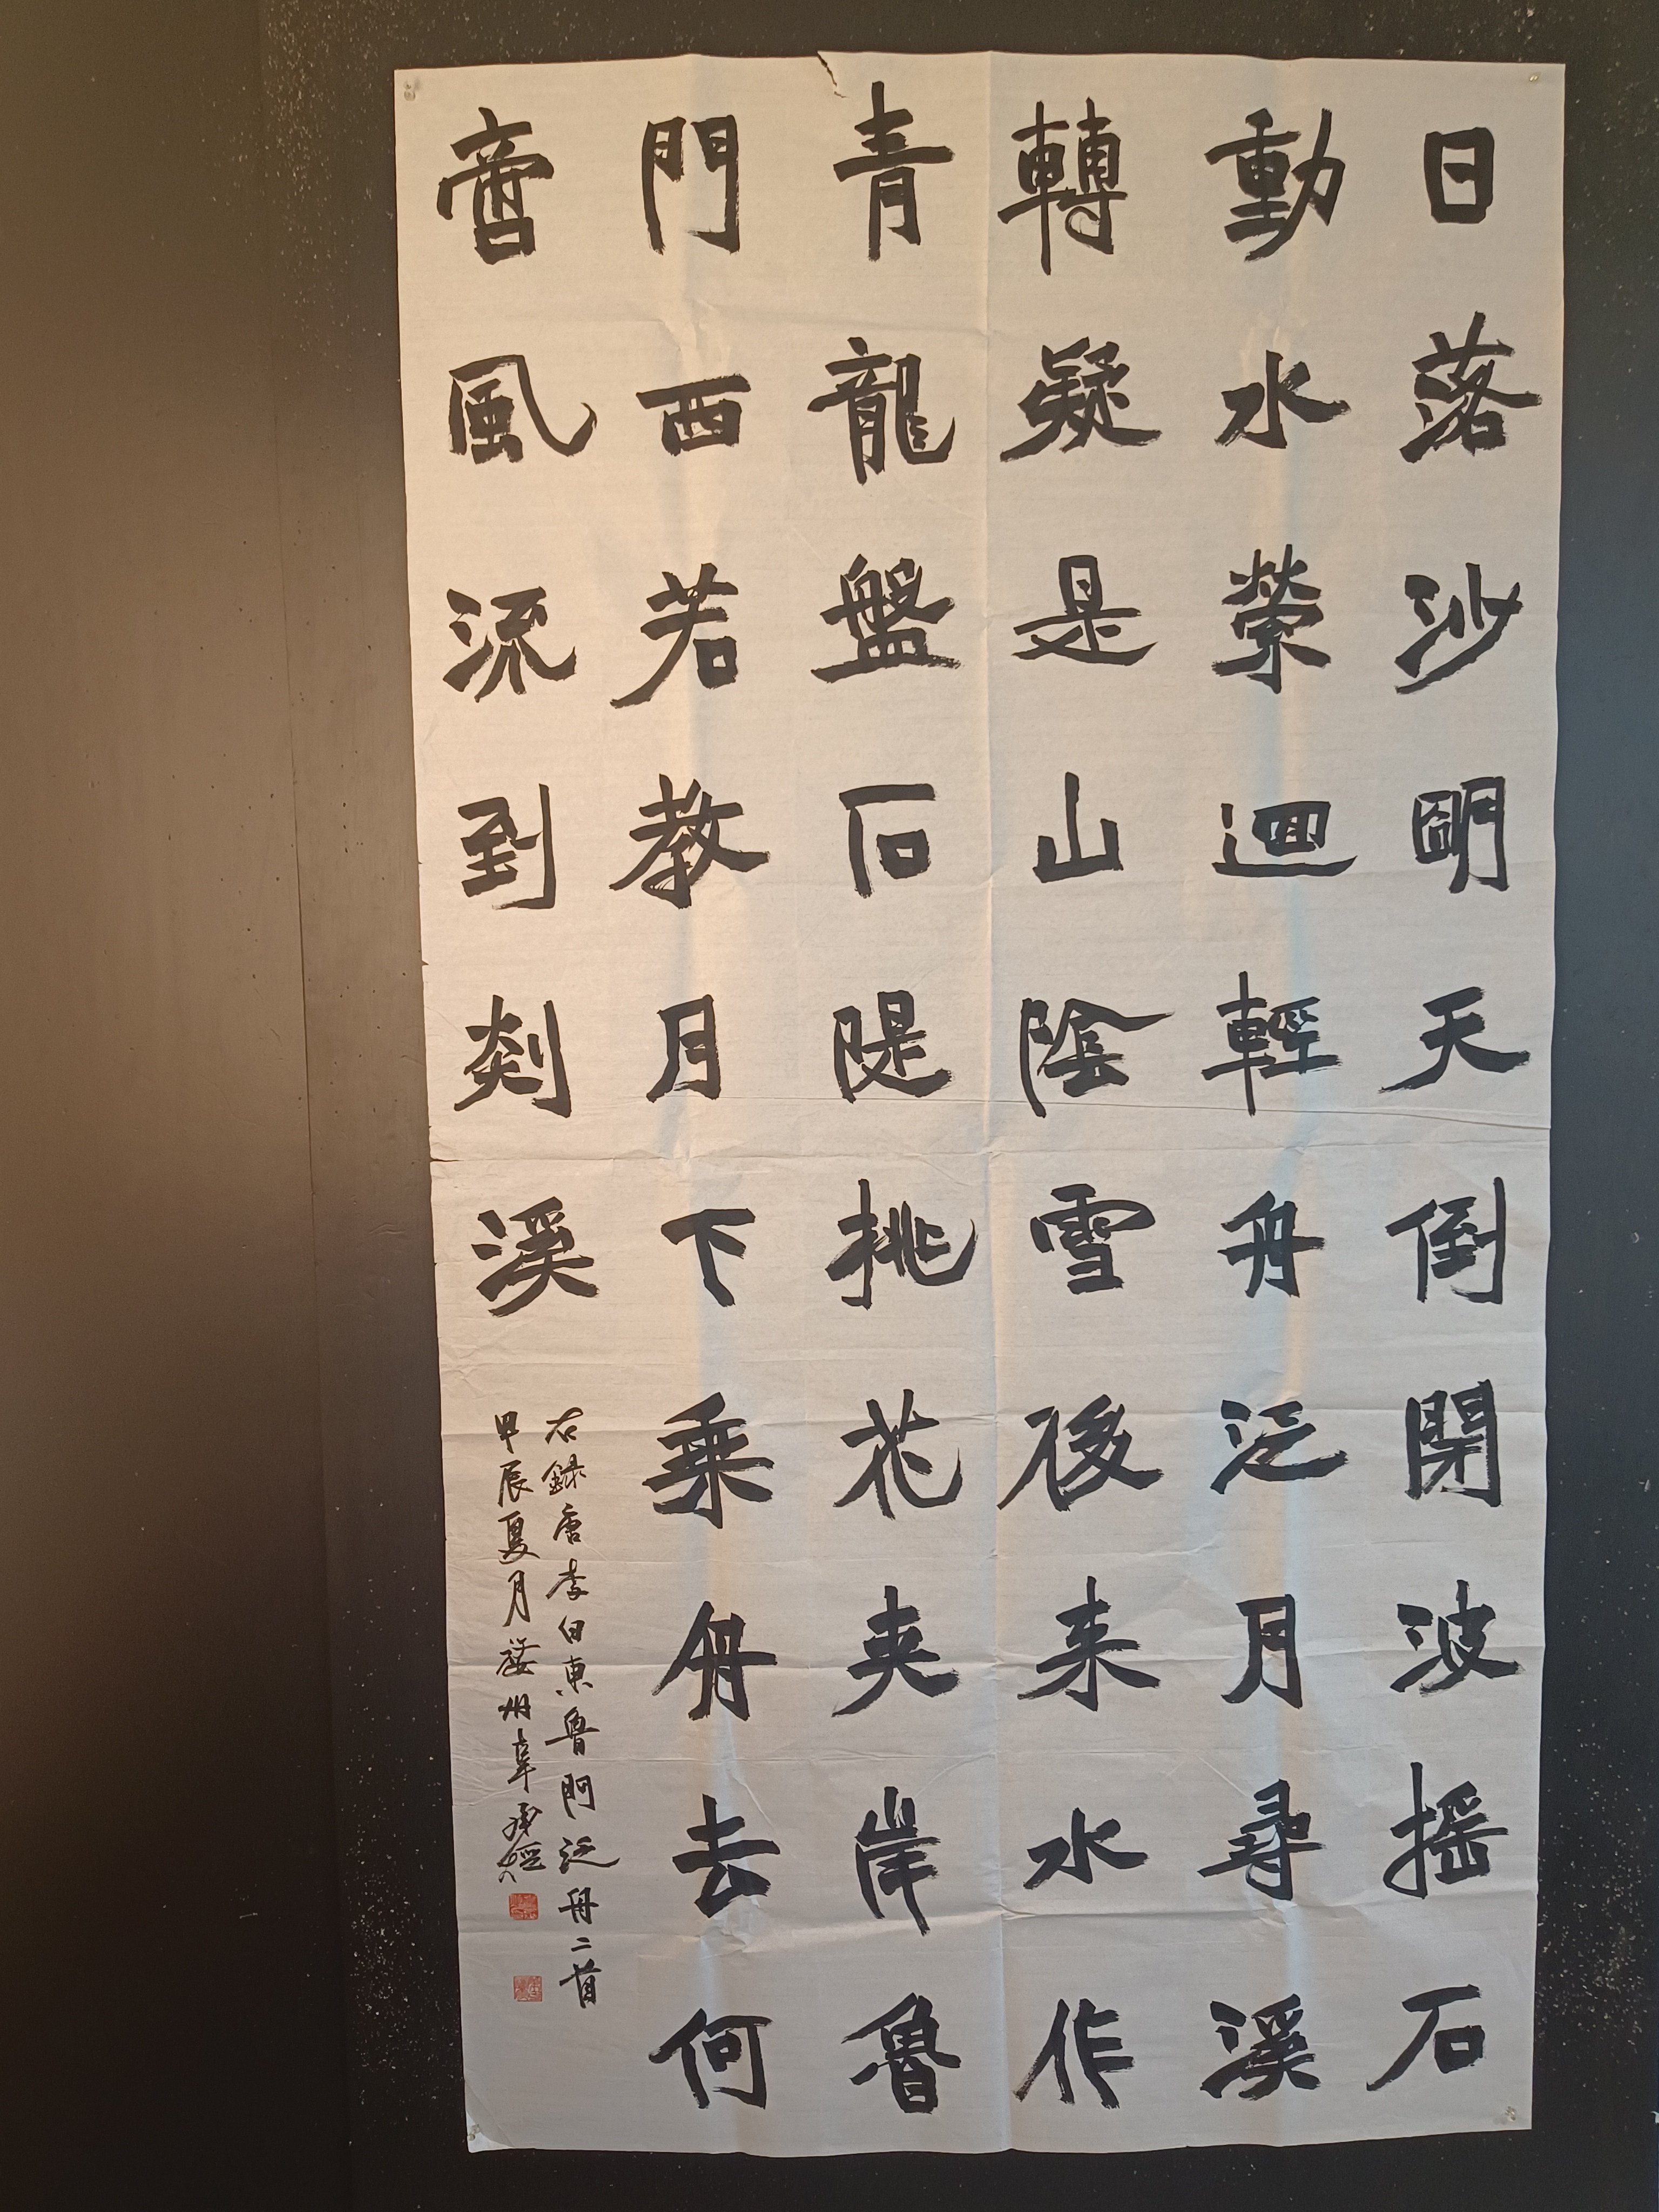 日落沙明天倒開波搖石
動水縈迴輕舟泛月尋溪
轉疑是山陰雪後来水作
青龍盤石隄桃花夾岸魯
門西若教月下乘舟去何
啻風流到剡溪
右録唐李白東魯門泛舟二首
甲辰夏月婺州章